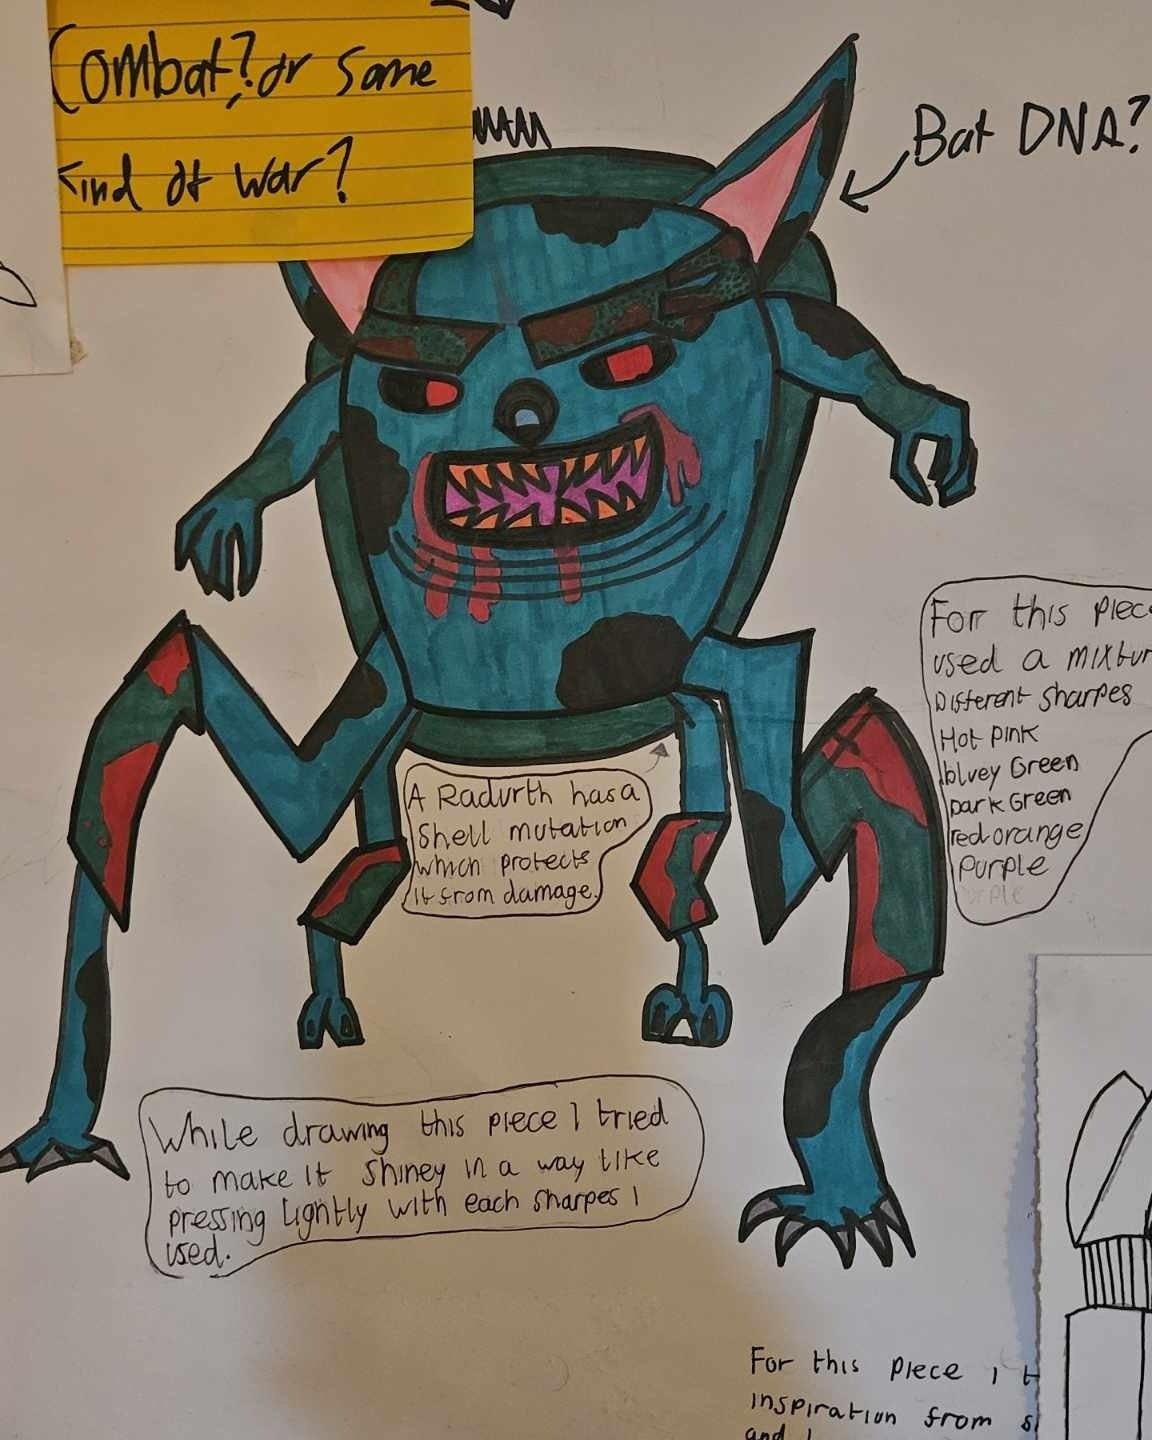 Combat? or some
kind of war?
Bat DNA?
For this piece
used a mixtur
Different sharpes
Hot pink
bluey Green
Dark Green
red orange
Purple
Purple
A Radurth has a
Shell mutation
which protects
it from damage.
While drawing this piece I tried
to make it shiney in a way like
pressing Lightly with each sharpes I
used.
For this piece I t
inspiration from si
and I